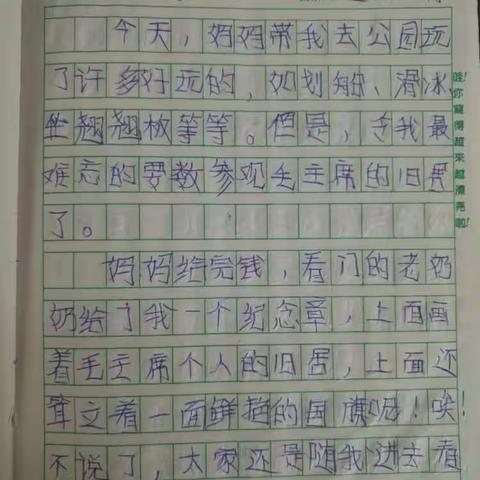 今天，妈妈带我去公园玩
了许多好玩的，如划船、滑冰、
坐翘翘板等等。但是，令我最
难忘的要数参观毛主席的旧居
了。
妈妈给完钱，看门的老奶
奶给了我一个纪念章，上面画
着毛主席个人的旧居，上面还
耸立着一面鲜艳的国旗呢！唉！
不说了，大家还是随我进去看
哇！你寫得越來越漂亮啦！